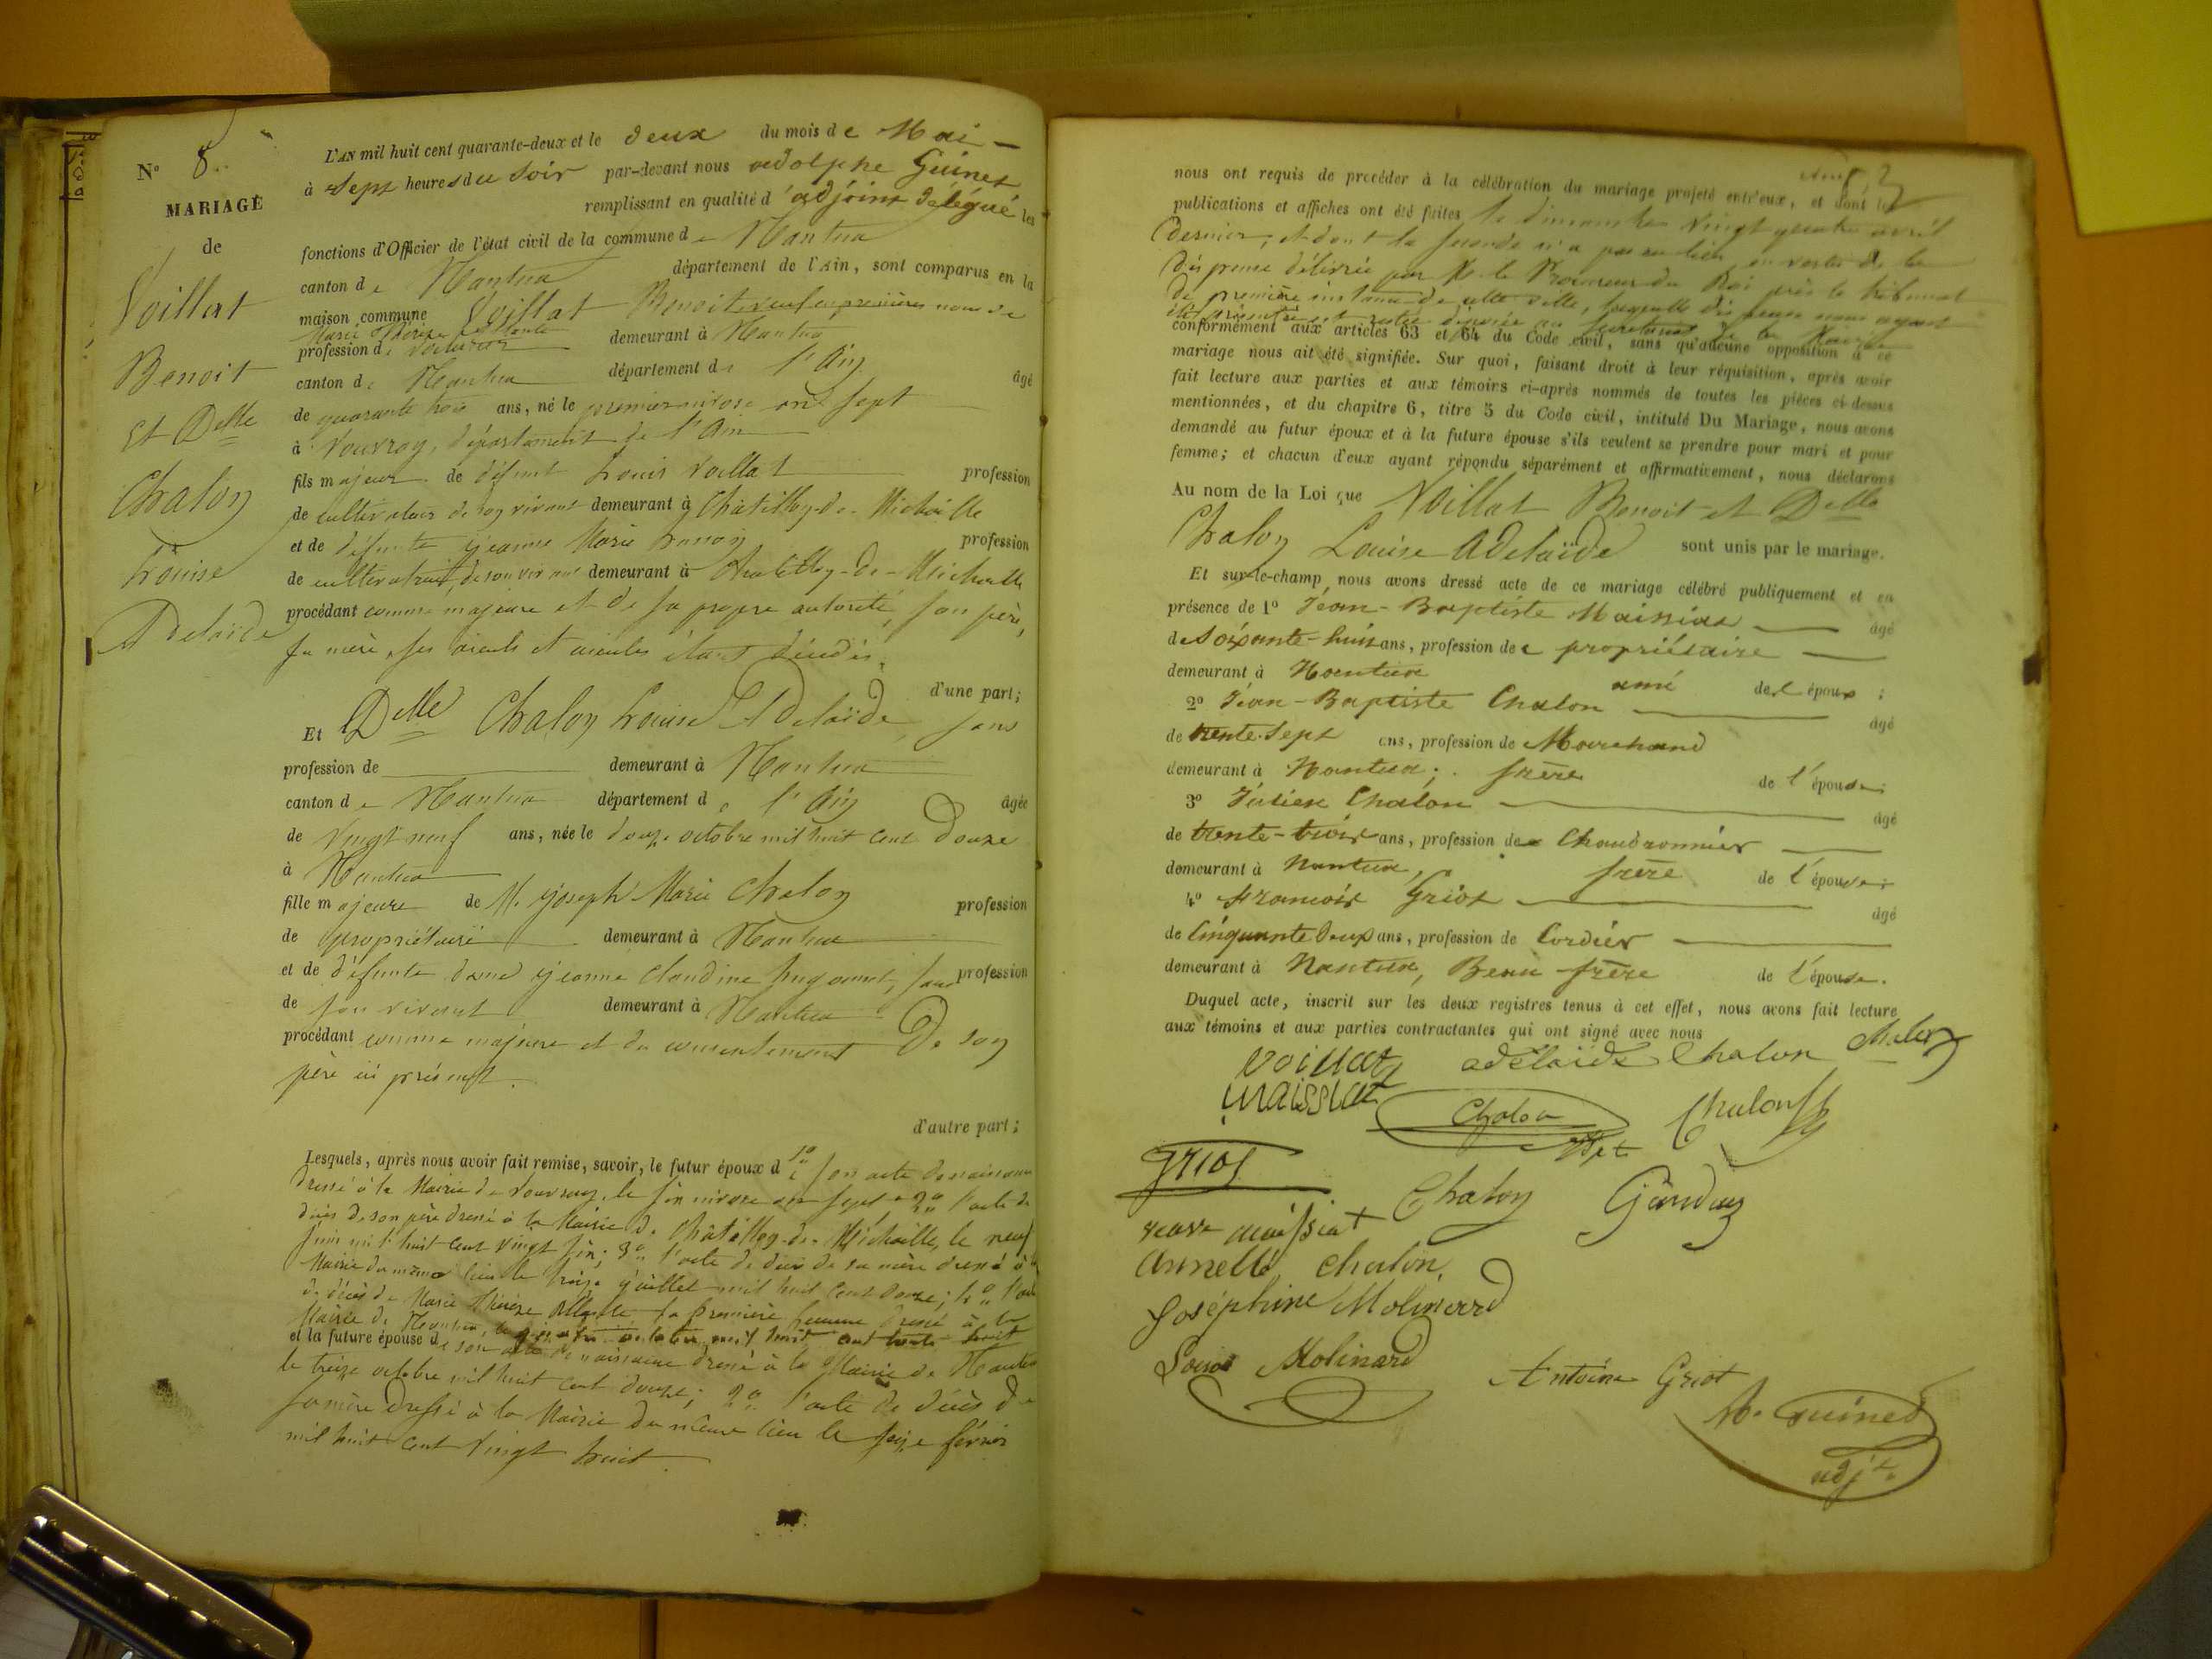 N° 8.
MARIAGE
de
Voillat
Benoit
Et Delle
Chalon
Louise
Adelaïde
L'AN mil huit cent quarante-deux et le deux du mois de Mai
à Sept heures du Soir par-devant nous adolphe Guinet
remplissant en qualité d'adjoint délégué les
fonctions d'Officier de l'état civil de la commune de Nantua
canton de Nantua département de l'Ain, sont comparus en la
maison commune Voillat Benoit veuf en premières noces de
Marie Thérèse
profession de demeurant à Nantua
canton de Nantua département de l'Ain âgé
de quarante trois ans, né le premier nivose an Sept
à Vouvray, département de l'Ain
fils majeur de défunt Louis Voillat profession
de cultivateur de son vivant demeurant à Châtillon-de-Michaille
et de défunte Jeanne Marie profession
de cultivatrice, de son vivant demeurant à Chatillon-de-Michaille
procédant comme majeur et de sa propre autorité, son père,
sa mère, ses aieuls et aieules étant décédés.
d'une part;
Et Delle Chalon Louise Adelaïde, sans
profession de demeurant à Nantua
canton de Nantua département de l'Ain âgée
de vingt neuf ans, née le douze octobre mil huit cent Douze
à Nantua
fille majeure de M. Joseph Marie Chalon profession
de propriétaire demeurant à Nantua
et de défunte dame Jeanne Claudine, sans profession
de son vivant demeurant à Nantua
procédant comme majeure et du consentement De son
père ici présent.
d'autre part;
Lesquels, après nous avoir fait remise, savoir, le futur époux de 1° son acte de naissance
dressé à la Mairie de Vouvray, le nivose an Sept 2° l'acte de
décès de son père dressé à la Mairie de Châtillon-de-Michaille, le neuf
Juin mil huit cent vingt six; 3° l'acte de décès de sa mère dressé à la
Mairie du même lieu le treize juillet mil huit cent douze; 4° l'acte
de décès de Marie Thérèse sa première femme dressé à la
Mairie de Nantua, le mil huit cent trente huit
et la future épouse de son acte de naissance dressé à la Mairie de Nantua
le treize octobre mil huit cent douze; 2° l'acte de décès de
sa mère dressé à la Mairie du même lieu le seize février
mil huit cent vingt huit.
nous ont requis de procéder à la célébration du mariage projeté entr'eux, et dont les
publications et affiches ont été faites le dimanche vingt quatre avril
dernier, et dont la seconde n'a pas eu lieu en vertu de la
dispense délivrée par M. le Procureur du Roi près le tribunal
de première instance de cette ville, laquelle dispense nous ayant
été présentée est restée déposée au secrétariat de la Mairie
conformément aux articles 63 et 64 du Code civil, sans qu'aucune opposition à ce
mariage nous ait été signifiée. Sur quoi, faisant droit à leur réquisition, après avoir
fait lecture aux parties et aux témoins ci-après nommés de toutes les pièces ci-dessus
mentionnées, et du chapitre 6, titre 5 du Code civil, intitulé Du Mariage, nous avons
demandé au futur époux et à la future épouse s'ils veulent se prendre pour mari et pour
femme; et chacun d'eux ayant répondu séparément et affirmativement, nous déclarons
Au nom de la Loi que Voillat Benoit et Delle
Chalon Louise Adelaïde sont unis par le mariage.
Et sur-le-champ nous avons dressé acte de ce mariage célébré publiquement et en
présence de 1° Jean-Baptiste Maissiat âgé
de Soixante-huit ans, profession de propriétaire
demeurant à Nantua ami de l'époux;
2° Jean-Baptiste Chalon âgé
de trente-Sept ans, profession de Marchand
demeurant à Nantua; frère de l'épouse;
3° Julien Chalon âgé
de trente-trois ans, profession de Chaudronnier
demeurant à Nantua, frère de l'épouse;
4° François Griot âgé
de Cinquante deux ans, profession de Cordier
demeurant à Nantua, Beau-frère de l'épouse.
Duquel acte, inscrit sur les deux registres tenus à cet effet, nous avons fait lecture
aux témoins et aux parties contractantes qui ont signé avec nous
Voillat adélaïde Chalon
maissiat Chalon Chalon
Griot
Chalon
veuve maissiat
annette chalon
Joséphine Molinard
Louise Molinard Antoine Griot
A. Guinet
adjt.